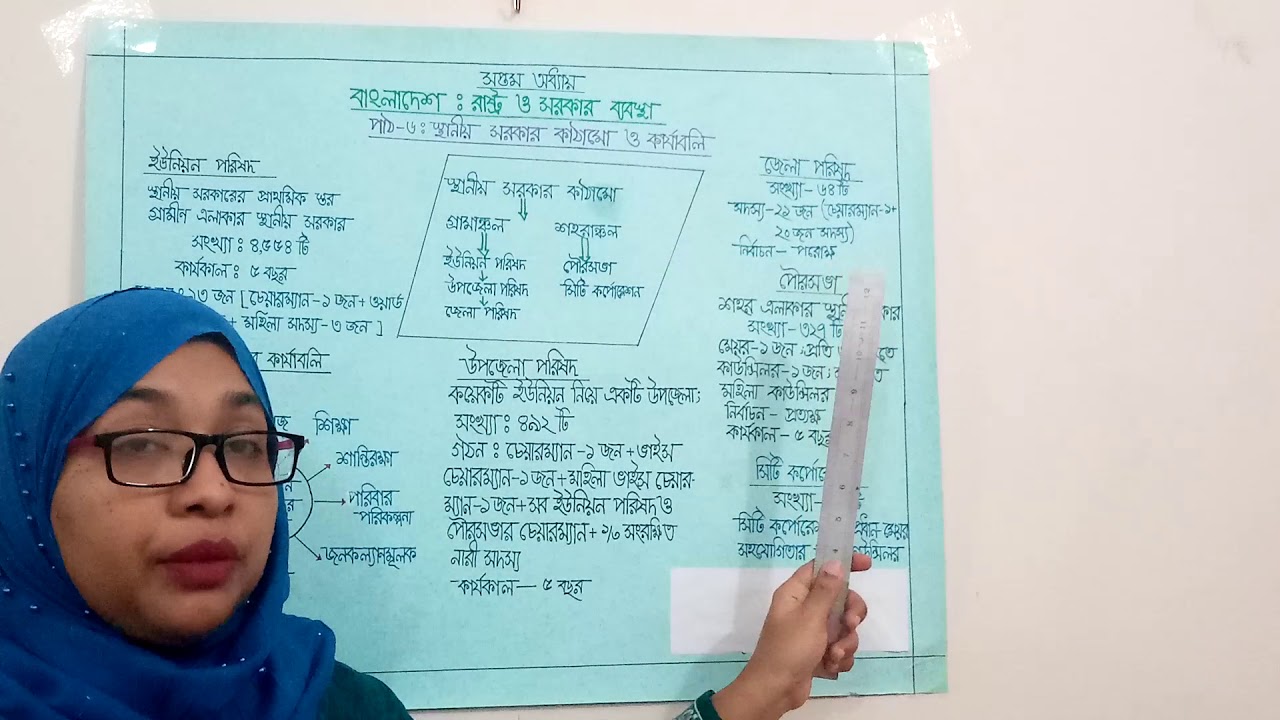 সপ্তম অধ্যায়
বাংলাদেশ : রাষ্ট্র ও সরকার ব্যবস্থা
পাঠ-৬ : স্থানীয় সরকার কাঠামো ও কার্যাবলি
ইউনিয়ন পরিষদ
স্থানীয় সরকারের প্রাথমিক স্তর
গ্রামীণ এলাকার স্থানীয় সরকার
সংখ্যা : ৪,৫৫৪ টি
কার্যকাল : ৫ বছর
১৩ জন [ চেয়ারম্যান-১ জন + ওয়ার্ড
+ মহিলা সদস্য- ৩ জন ]
কার্যাবলি
শিক্ষা
শান্তিরক্ষা
পরিবার
পরিকল্পনা
জনকল্যানমূলক
স্থানীয় সরকার কাঠামো
গ্রামাঞ্চল শহরাঞ্চল
ইউনিয়ন পরিষদ পৌরসভা
উপজেলা পরিষদ সিটি কর্পোরেশন
জেলা পরিষদ
উপজেলা পরিষদ
কয়েকটি ইউনিয়ন নিয়ে একটি উপজেলা;
সংখ্যা : ৪৯২ টি
গঠন : চেয়ারম্যান - ১ জন + ভাইস
চেয়ারম্যান-১জন + মহিলা ভাইস চেয়ার-
ম্যান-১জন + সব ইউনিয়ন পরিষদ ও
পৌরসভার চেয়ারম্যান + ১/৩ সংরক্ষিত
নারী সদস্য
কার্যকাল — ৫ বছর
জেলা পরিষদ
সংখ্যা - ৬৪ টি
সদস্য-২১ জন (চেয়ারম্যান-১+
২০ জন সদস্য)
নির্বাচন - পরোক্ষ
পৌরসভা
শহর এলাকার
সংখ্যা - ৩২৭
মেয়র-১ জন, প্রতি
কাউন্সিলর-১ জন;
মহিলা কাউন্সিলর
নির্বাচন - প্রত্যক্ষ
কার্যকাল - ৫ বছর
সিটি
সংখ্যা-
সিটি মেয়র
সহযোগিতার